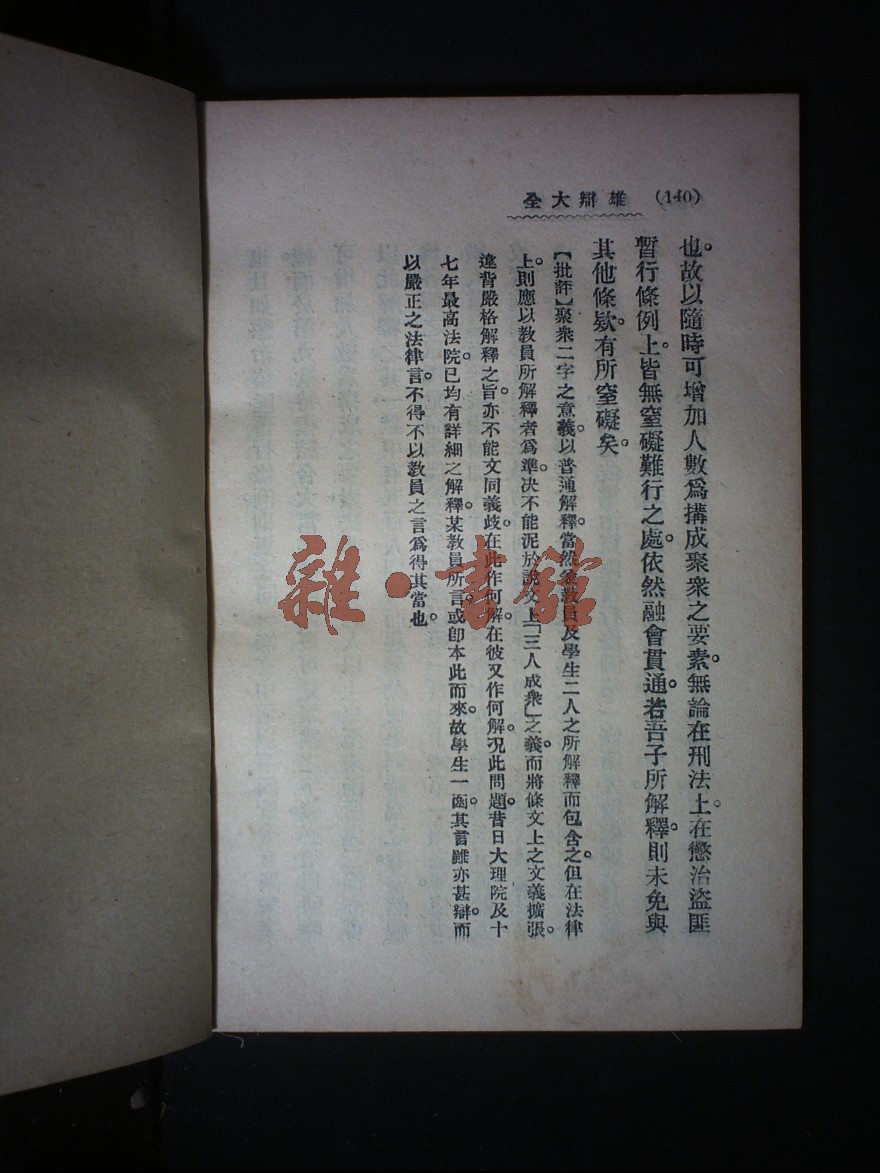 (140) 雄辯大全
也。故以隨時可增加人數爲搆成聚衆之要素。無論在刑法上。在懲治盜匪
暫行條例上。皆無窒礙難行之處。依然融會貫通。若吾子所解釋。則未免與
其他條欵。有所窒礙矣。
【批評】聚衆二字之意義。以普通解釋。當然兼教員及學生二人之所解釋而包含之。但在法律
上。則應以教員所解釋者爲準。决不能泥於說文上「三人成衆」之義。而將條文上之文義擴張。
違背嚴格解釋之旨。亦不能文同義歧。在此作何解。在彼又作何解。况此問題。昔日大理院及十
七年最高法院。已均有詳細之解釋。某教員所言。或卽本此而來。故學生一函。其言雖亦甚辯。而
以嚴正之法律言。不得不以教員之言爲得其當也。
雜·書館